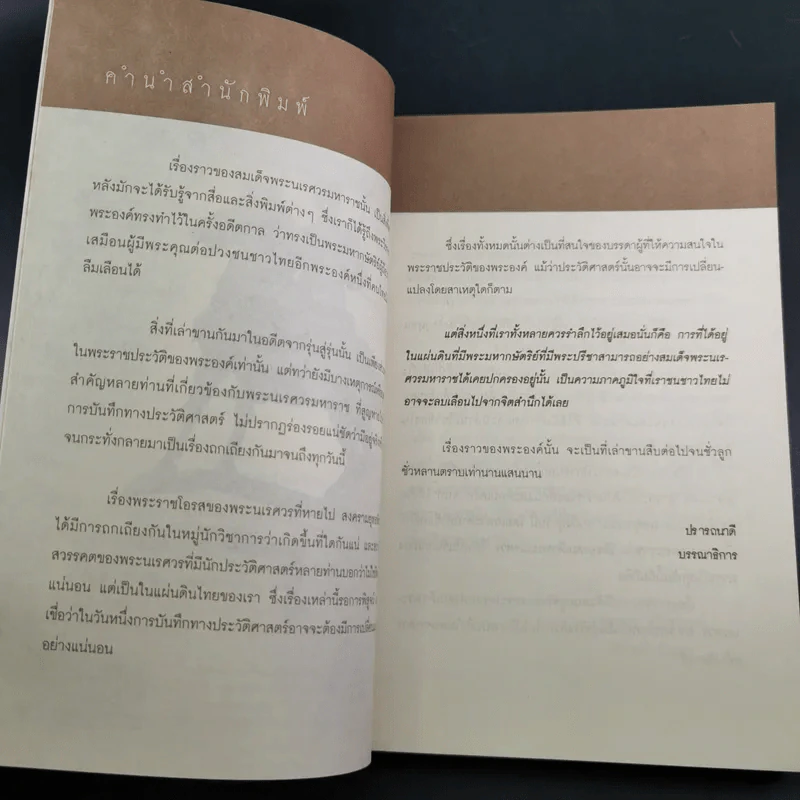 คำนำสำนักพิมพ์
เรื่องราวของสมเด็จพระนเรศวรมหาราชนั้น
หลังมักจะได้รับรู้จากสื่อและสิ่งพิมพ์ต่างๆ ซึ่งเราก็ได้รู้ถึง
พระองค์ทรงทำไว้ในครั้งอดีตกาล ว่าทรงเป็นพระมหากษัตริย์
เสมือนผู้มีพระคุณต่อปวงชนชาวไทยอีกพระองค์หนึ่งที่
ลืมเลือนได้
สิ่งที่เล่าขานกันมาในอดีตจากรุ่นสู่รุ่นนั้น เป็นเพียง
ในพระราชประวัติของพระองค์เท่านั้น แต่ทว่ายังมีบางเหตุการณ์
สำคัญหลายท่านที่เกี่ยวข้องกับพระนเรศวรมหาราช ที่สูญหาย
การบันทึกทางประวัติศาสตร์ ไม่ปรากฏร่องรอยแน่ชัดว่ามีอยู่
จนกระทั่งกลายมาเป็นเรื่องถกเถียงกันมาจนถึงทุกวันนี้
เรื่องพระราชโอรสของพระนเรศวรที่หายไป สงครามยุทธหัตถี
ได้มีการถกเถียงกันในหมู่นักวิชาการว่าเกิดขึ้นที่ใดกันแน่
สวรรคตของพระนเรศวรที่มีนักประวัติศาสตร์หลายท่านบอกว่า
แน่นอน แต่เป็นในแผ่นดินไทยของเรา ซึ่งเรื่องเหล่านี้รอการ
เชื่อว่าในวันหนึ่งการบันทึกทางประวัติศาสตร์อาจจะต้องมีการ
อย่างแน่นอน
ซึ่งเรื่องทั้งหมดนั้นต่างเป็นที่สนใจของบรรดาผู้ที่ให้ความสนใจใน
พระราชประวัติของพระองค์ แม้ว่าประวัติศาสตร์นั้นอาจจะมีการเปลี่ยน-
แปลงโดยสาเหตุใดก็ตาม
แต่สิ่งหนึ่งที่เราทั้งหลายควรรำลึกไว้อยู่เสมอนั่นก็คือ การที่ได้อยู่
ในแผ่นดินที่มีพระมหากษัตริย์ที่มีพระปรีชาสามารถอย่างสมเด็จพระนเร-
ศวรมหาราชได้เคยปกครองอยู่นั้น เป็นความภาคภูมิใจที่เราชนชาวไทยไม่
อาจจะลบเลือนไปจากจิตสำนึกได้เลย
เรื่องราวของพระองค์นั้น จะเป็นที่เล่าขานสืบต่อไปจนชั่วลูก
ชั่วหลานตราบเท่านานแสนนาน
ปรารถนาดี
บรรณาธิการ